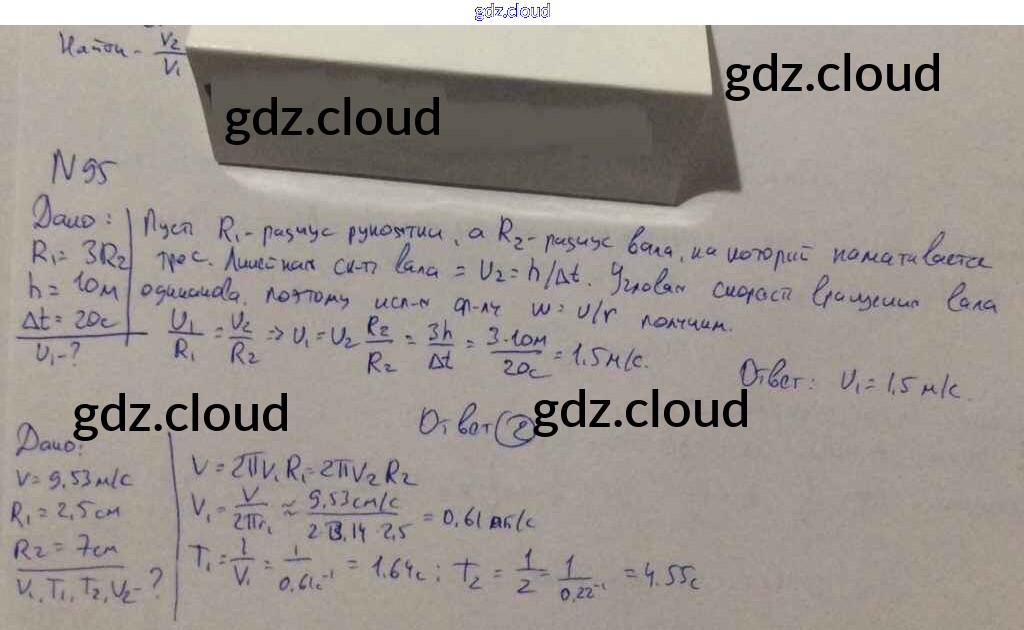 gdz.cloud
Найти - V₂/V₁
gdz.cloud
gdz.cloud
N 95
Дано:
R₁ = 3R₂
h = 10м
Δt = 20с
υ₁ - ?
Пусть R₁ - радиус рукоятки, а R₂ - радиус вала, на который наматывается
трос. Линейная ск-ть вала = υ₂ = h/Δt. Угловая скорость вращения вала
одинакова, поэтому исп-м ф-лу w = υ/r получим.
υ₁/R₁ = υ₂/R₂ => υ₁ = υ₂ R₂/R₂ = 3h/Δt = 3·10м/20с = 1.5м/с.
Ответ: υ₁ = 1,5 м/с.
gdz.cloud
gdz.cloud
Ответ 2
Дано:
V = 9,53м/с
R₁ = 2,5см
R₂ = 7см
V₁, T₁, T₂, V₂ - ?
V = 2πV₁R₁ = 2πV₂R₂
V₁ = V/2πr₁ ≈ 9,53см/с / 2 3,14 2,5 = 0,61 /с
T₁ = 1/V₁ = 1/0,61с⁻¹ = 1.64с; T₂ = 1/2 = 1/0,22⁻¹ = 4.55с